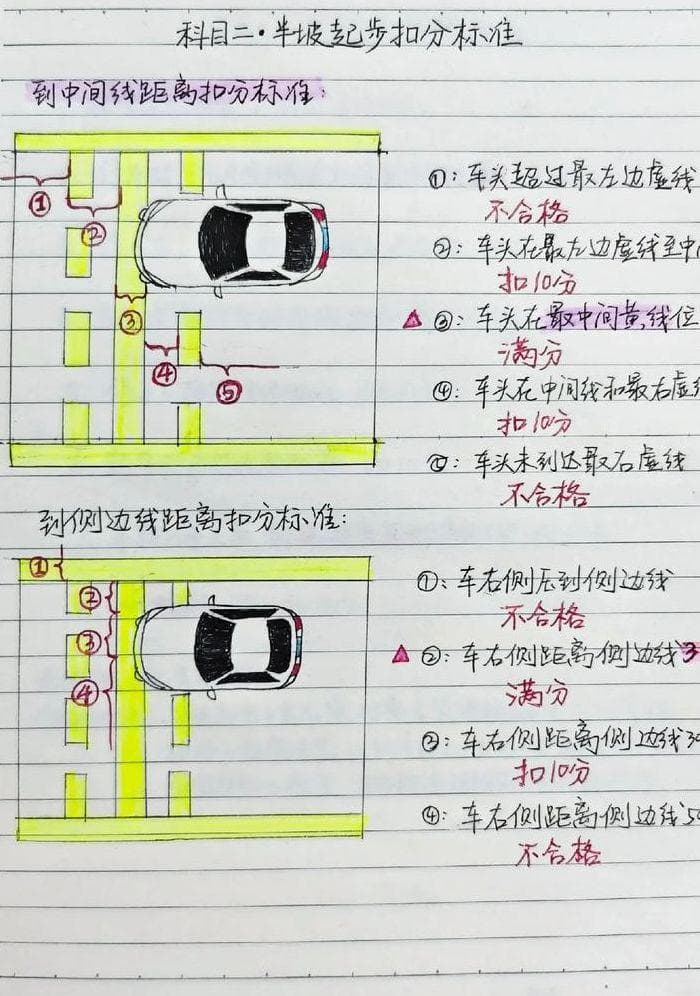 科目二·半坡起步扣分标准
到中间线距离扣分标准:
①
②
③
④
⑤
①: 车头超过最左边虚线
不合格
②: 车头在最左边虚线至中
扣10分
③: 车头在最中间黄线位
满分
④: 车头在中间线和最右虚线
扣10分
⑤: 车头未到达最右虚线
不合格
到侧边线距离扣分标准:
①
②
③
④
①: 车右侧压到侧边线
不合格
②: 车右侧距离侧边线3
满分
③: 车右侧距离侧边线30
扣10分
④: 车右侧距离侧边线50
不合格